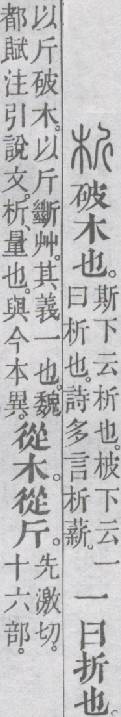 析破木也。斯下云析也。柀下云一曰析也。詩多言析薪。一曰折也。
以斤破木。以斤斷艸。其義一也。魏都賦注引說文。析、量也。與今本異。從木。從斤。先激切。十六部。